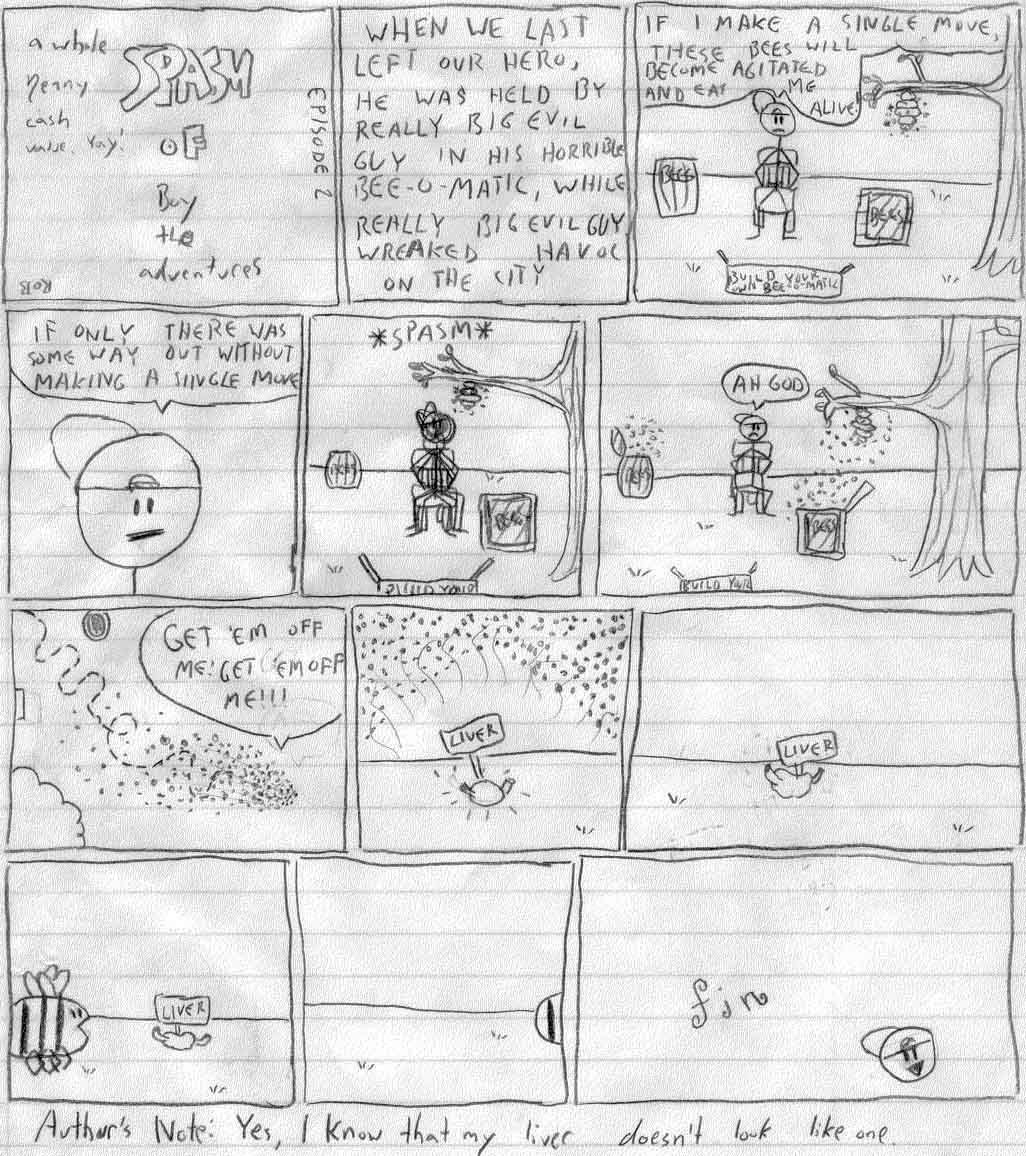 a whole
Penny
cash
value. Yay!
SPASM
OF
Boy
the
adventures
EPISODE 2
RoB
WHEN WE LAST
LEFT OUR HERO,
HE WAS HELD BY
REALLY BIG EVIL
GUY IN HIS HORRIBLE
BEE-O-MATIC, WHILE
REALLY BIG EVIL GUY
WREAKED HAVOC
ON THE CITY
IF I MAKE A SINGLE MOVE,
THESE BEES WILL
BECOME AGITATED
AND EAT ME
ALIVE!
BEES
BEES
BUILD YOUR
OWN BEE-O-MATIC
IF ONLY THERE WAS
SOME WAY OUT WITHOUT
MAKING A SINGLE MOVE
*SPASM*
BEES
BEES
BUILD YOUR
AH GOD
BEES
BEES
BUILD YOUR
GET 'EM OFF
ME! GET 'EM OFF
ME!!!
LIVER
LIVER
LIVER
fin
Author's Note: Yes, I know that my liver doesn't look like one.